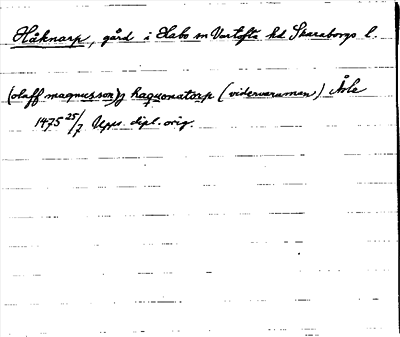 Håknarp, gård i Slabo sn Vartofta hd Skaraborgs l.
(olaff magnusson) j haquonatorp (vidervaruman) Åsle
1475 25/7 Upps. dipl. orig.